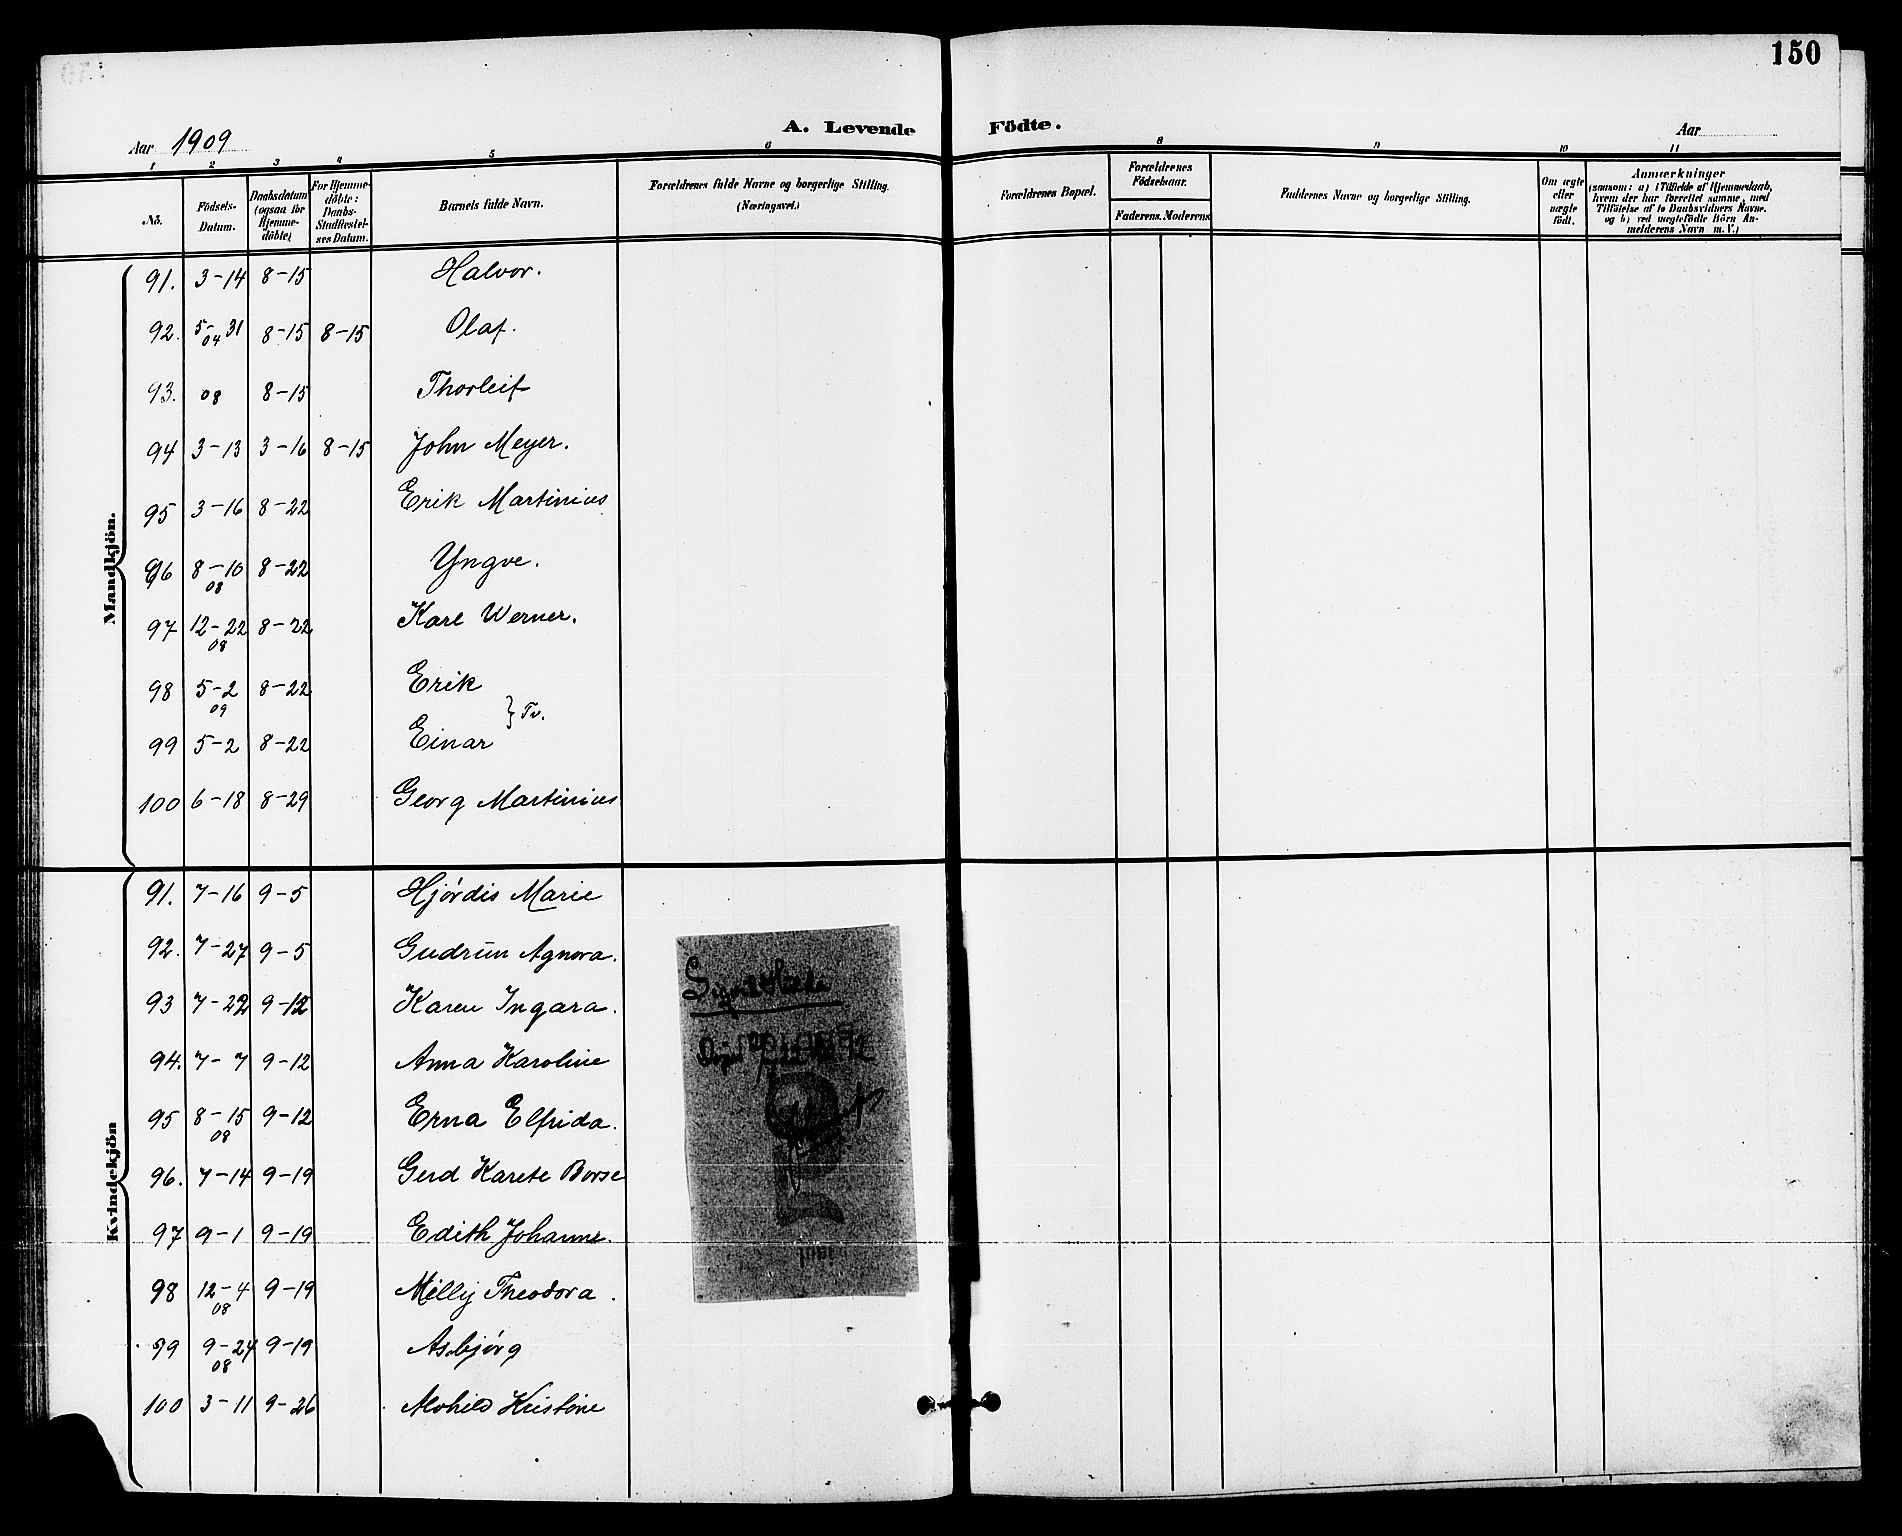 150
A. Levende Födte.
Aar 1909
Aar
1 2 3 4 5 6 8 9 10 11
No.
Födsels-Datum.
Daabsdatum (ogsaa for Hjemme-döbte)
For Hjemme-döbte: Daabs-Stadfæstel-ses Datum.
Barnets fulde Navn.
Forældrenes fulde Navne og borgerlige Stilling. (Næringsvei.)
Forældrenes Bopæl.
Forældrenes Födselsaar.
Faderens. Moderens.
Faddernes Navne og borgerlige Stilling.
Om ægte eller uægte födt.
Anmærkninger
(saasom: a) i Tilfælde af Hjemmedaab,
hvem der har forrettet samme, med
Tilföielse af to Daabsvidners Navne.
og b) ved uægtefödte Börn An-
melderens Navn m. V.)
Mandkjön.
91. 3-14 8-15 Halvor.
92. 5-31 04 8-15 8-15 Olaf.
93. 08 8-15 Thorleif
94 3-13 3-16 8-15 John Meyer.
95 3-16 8-22 Erik Martinius
96 8-10 08 8-22 Yngve.
97 12-22 08 8-22 Karl Werner.
98 5-2 09 8-22 Erik
} Tv.
99 5-2 8-22 Einar
100 6-18 8-29 Georg Martinius
Kvindekjön
91. 7-16 9-5 Hjórdis Marie
92. 7-27 9-5 Gudrun Agnora.
93 7-22 9-12 Karen Ingara.
94. 7-7 9-12 Anna Karoline
95 8-15 08 9-12 Erna Elfrida.
96. 7-14 9-19 Gerd Karete Borse
97 9-1 9-19 Edith Johanne.
98 12-4 08 9-19 Milly Theodora.
99 9-24 08 9-19 Asbjórg
100 3-11 9-26 Kristine